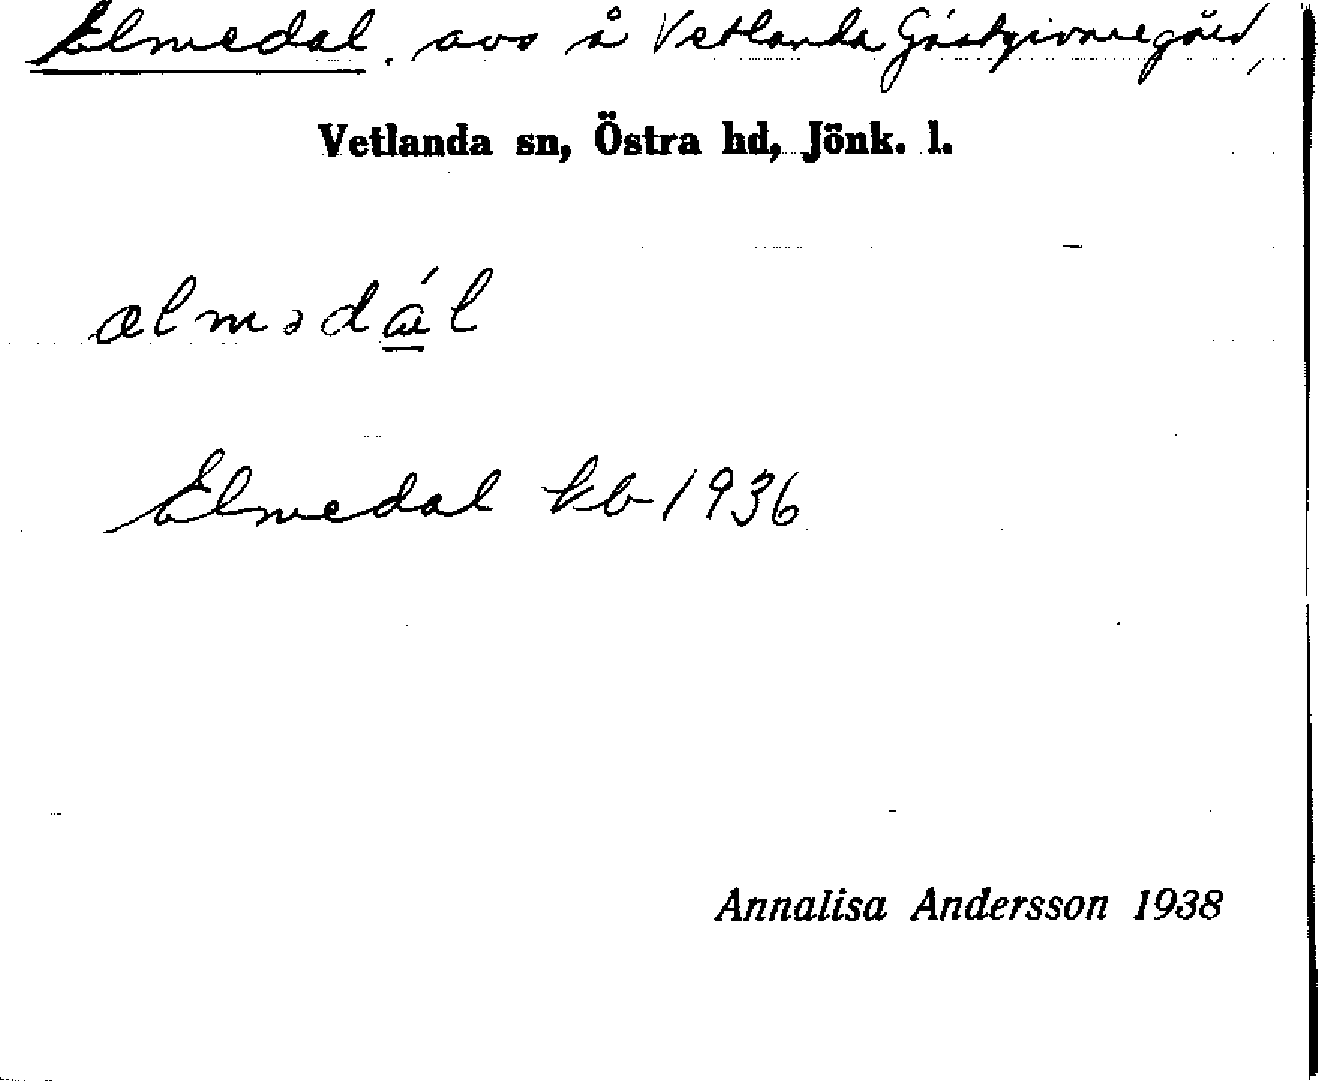 Elmedal, avs å Vetlanda Gästgivaregård,
Vetlanda sn, Östra hd, Jönk. l.
ælmədá̱l
Elmedal kb 1936
Annalisa Andersson 1938